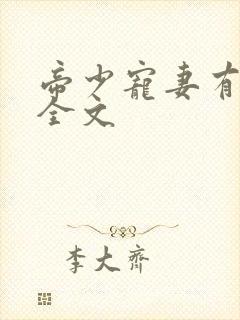 帝少宠妻有
全文
李大齐